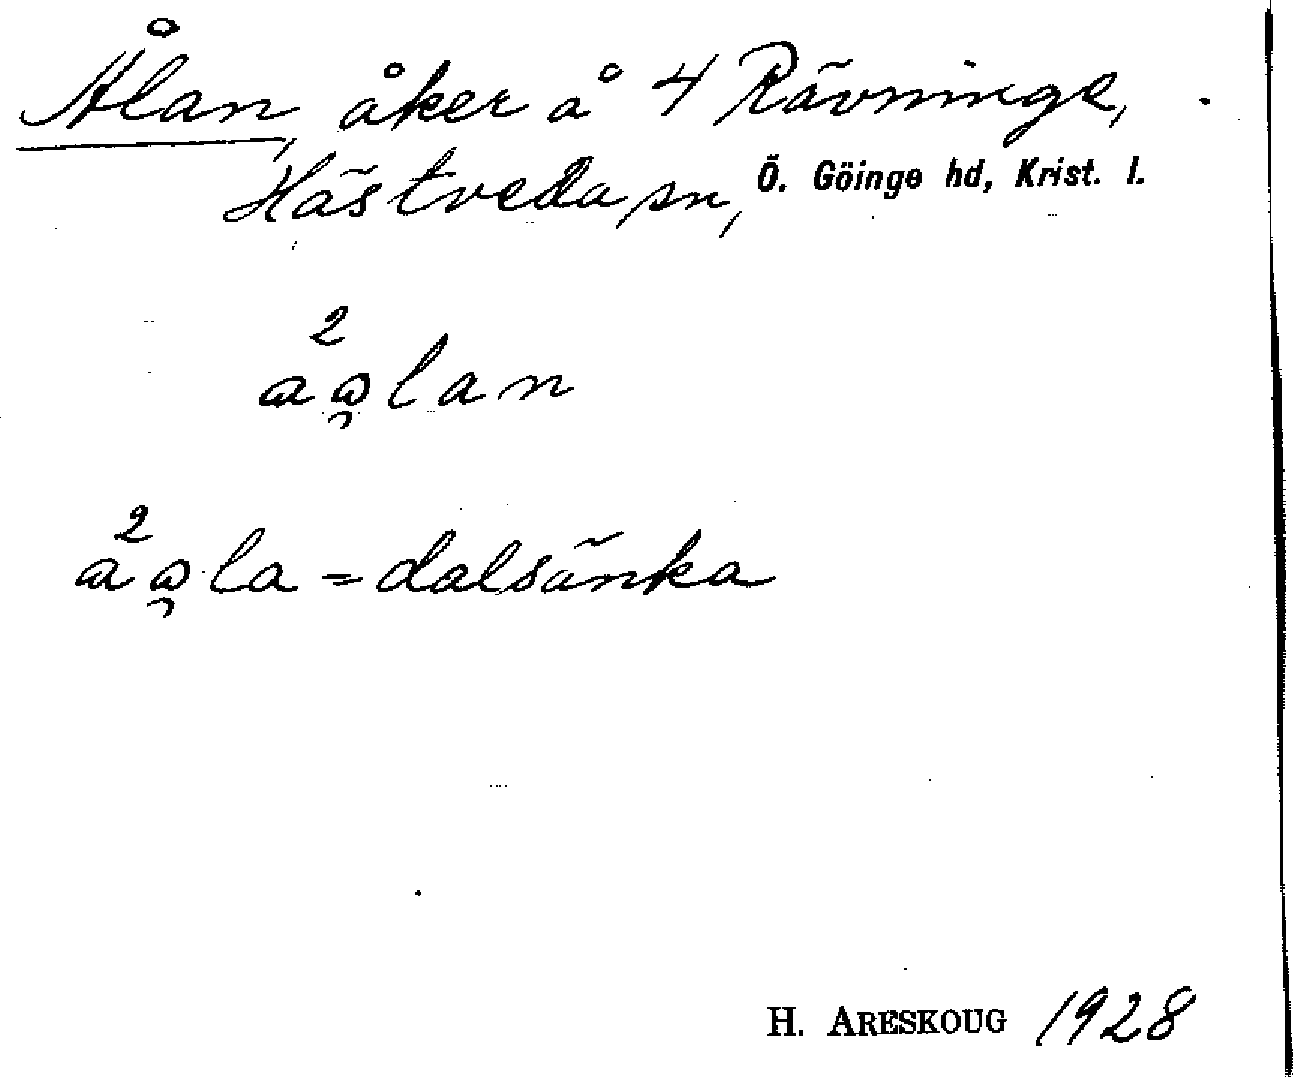 Ålan, åker å 4 Rävninge,
Hästveda sn, Ö. Göinge hd, Krist. l.
2
aålan
2
aåla = dalsänka
H. ARESKOUG 1928